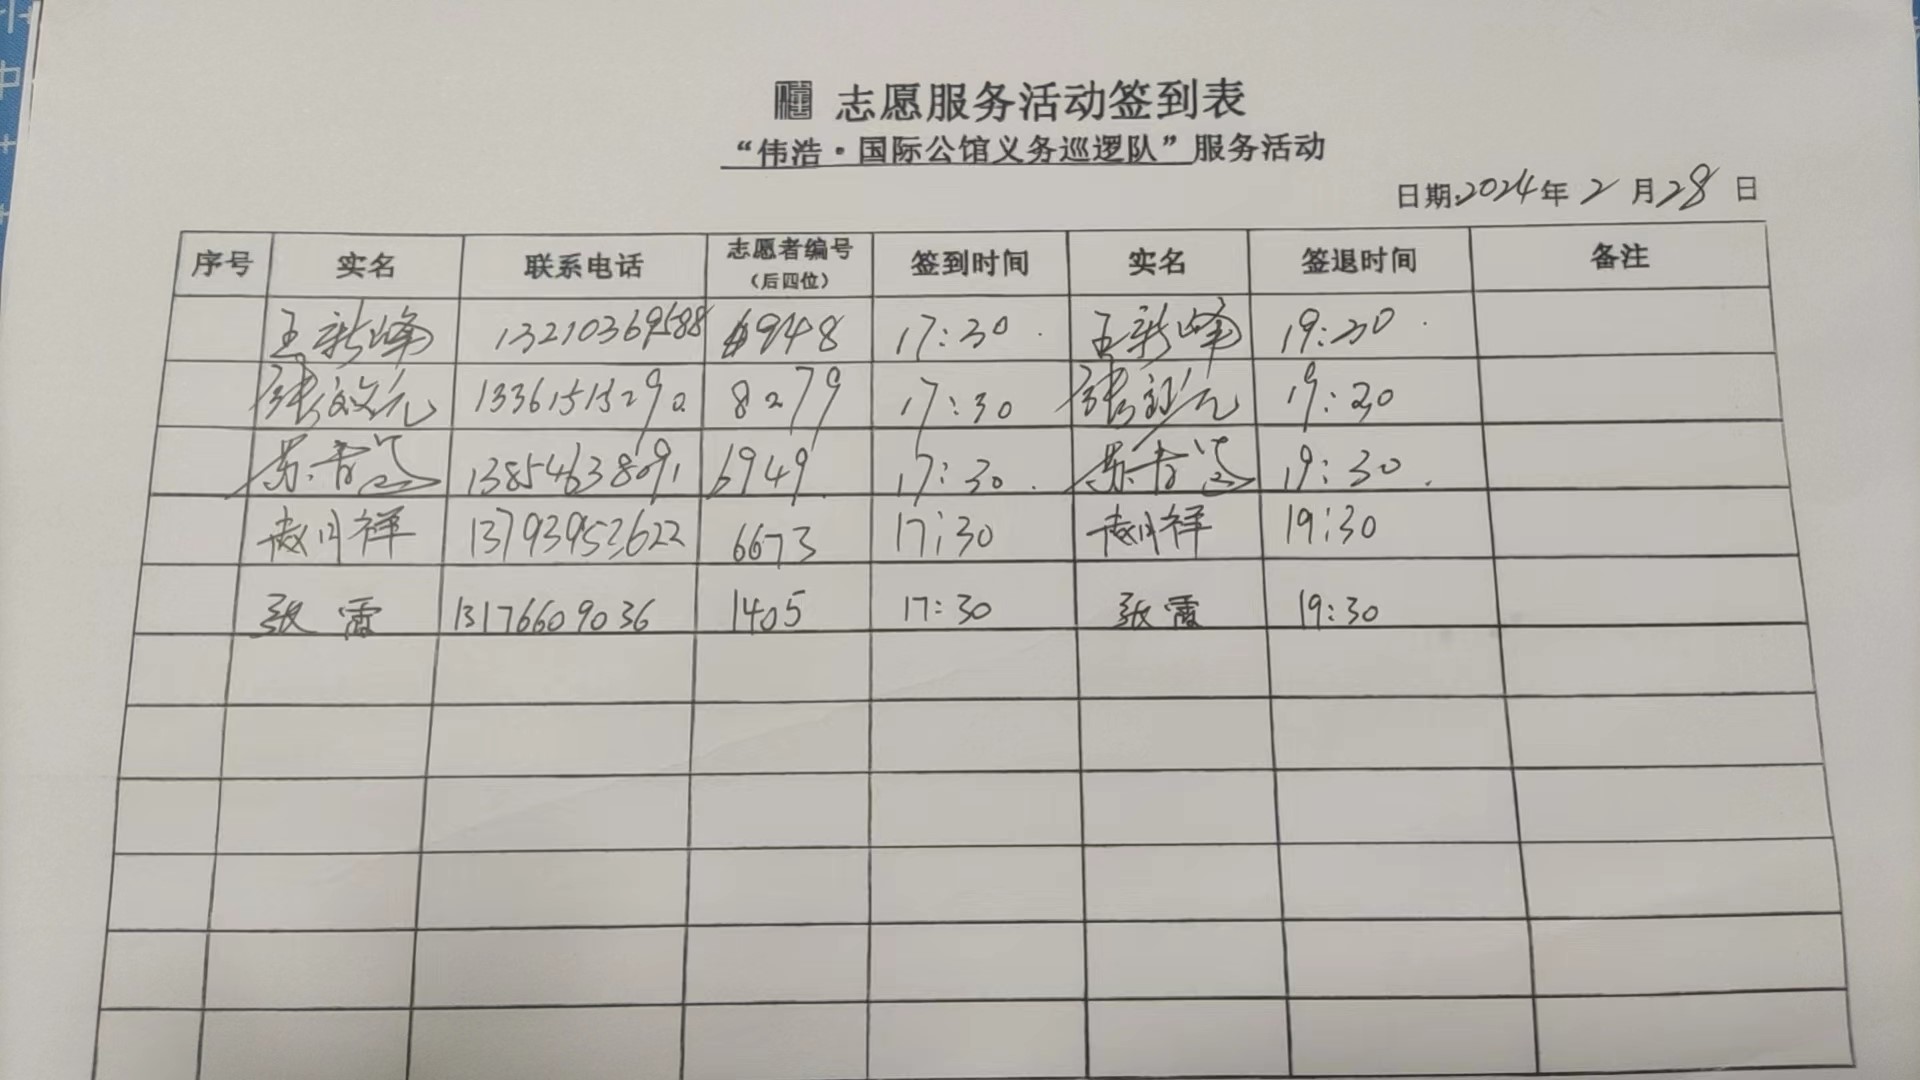 志愿服务活动签到表
“伟浩·国际公馆义务巡逻队”服务活动
日期:2024年2月28日
序号 实名 联系电话 志愿者编号（后四位） 签到时间 实名 签退时间 备注
王新峰 13210369588 6948 17:30 王新峰 19:30
张 元 13361515290 8279 17:30 张 元 19:30
13854638091 6949 17:30 19:30
赵月祥 13793952622 6673 17:30 赵月祥 19:30
张霞 13176609036 1405 17:30 张霞 19:30